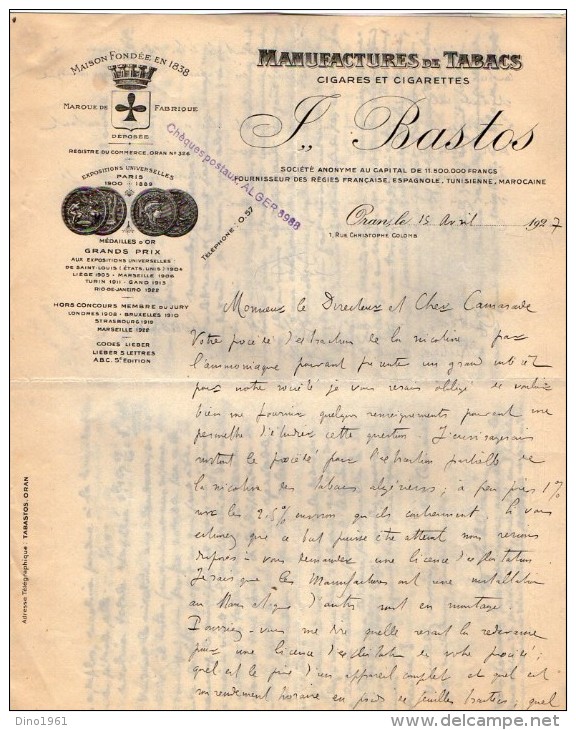 MAISON FONDÉE EN 1838
MARQUE DE FABRIQUE
DÉPOSÉE
REGISTRE DU COMMERCE. ORAN Nº 326
EXPOSITIONS UNIVERSELLES
PARIS
1900 - 1889
MÉDAILLES D'OR
GRANDS PRIX
AUX EXPOSITIONS UNIVERSELLES
DE SAINT-LOUIS (ÉTATS, UNIS) 1904
LIÈGE 1905 - MARSEILLE 1906
TURIN 1911 - GAND 1913
RIO-DE-JANEIRO 1922
HORS CONCOURS MEMBRE DU JURY
LONDRES 1908 - BRUXELLES 1910
STRASBOURG 1919
MARSEILLE 1922
CODES LIEBER
LIEBER 5 LETTRES
A.B.C. 5E ÉDITION
Adresse Télégraphique : TABASTOS. ORAN
MANUFACTURES DE TABACS
CIGARES ET CIGARETTES
J. Bastos
SOCIÉTÉ ANONYME AU CAPITAL DE 11.500.000 FRANCS
FOURNISSEUR DES RÉGIES FRANÇAISE, ESPAGNOLE, TUNISIENNE, MAROCAINE
Chèques postaux: ALGER 3988
TÉLÉPHONE : 0.57
Oran, le 15 Avril 1927
1, RUE CHRISTOPHE COLOMB
Monsieur le Directeur et Cher Camarade
Votre procédé d'extraction de la nicotine par
l'ammoniaque pouvant présenter un grand intérêt
pour notre société je vous serais obligé de vouloir
bien me fournir quelques renseignements pouvant me
permettre d'étudier cette question. J'envisagerais
surtout le procédé pour l'extraction partielle de
la nicotine des tabacs algériens ; à peu près 1%
sur les 2.5% environ qu'ils contiennent. Si vous
estimez que ce but puisse être atteint nous serions
disposés à vous demander une licence d'exploitation.
Je sais que les Manufactures ont une installation
au Mans et que d'autres sont en montage.
Pourriez-vous me dire quelle serait la redevance
pour une licence d'exploitation de votre procédé ;
quel est le prix d'un appareil complet et quel est
son rendement horaire en poids de feuilles traitées ; quel
Dino1961
www.delcampe.net